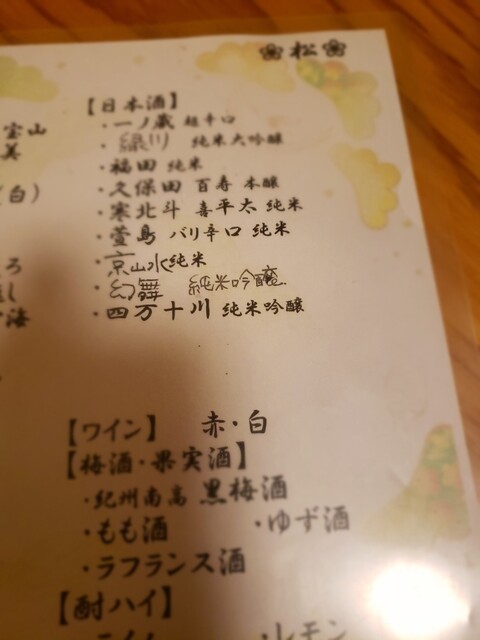 松
宝山
美
(白)
ろ
し
海
【日本酒】
・一ノ蔵 超辛口
・緑川 純米大吟醸
・福田 純米
・久保田 百寿 本醸
・寒北斗 喜平太 純米
・萱島 バリ辛口 純米
・京山水純米
・幻舞 純米吟醸
・四万十川 純米吟醸
【ワイン】 赤・白
【梅酒・果実酒】
・紀州南高 黒梅酒
・もも酒 ・ゆず酒
・ラフランス酒
【酎ハイ】
・レモン